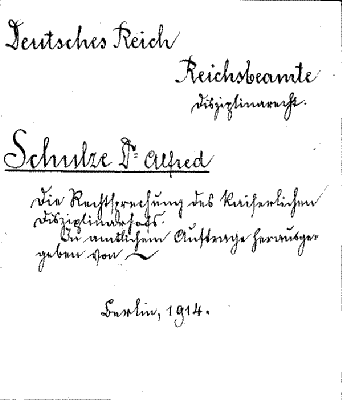 Deutsches Reich
Reichsbeamte
Disziplinarecht.
Schulze Dr Alfred
Die Rechtsprechung des Kaiserlichen
Disziplinarhofs.
In amtlichem Auftrage herausge-
geben von ~
Berlin, 1914.